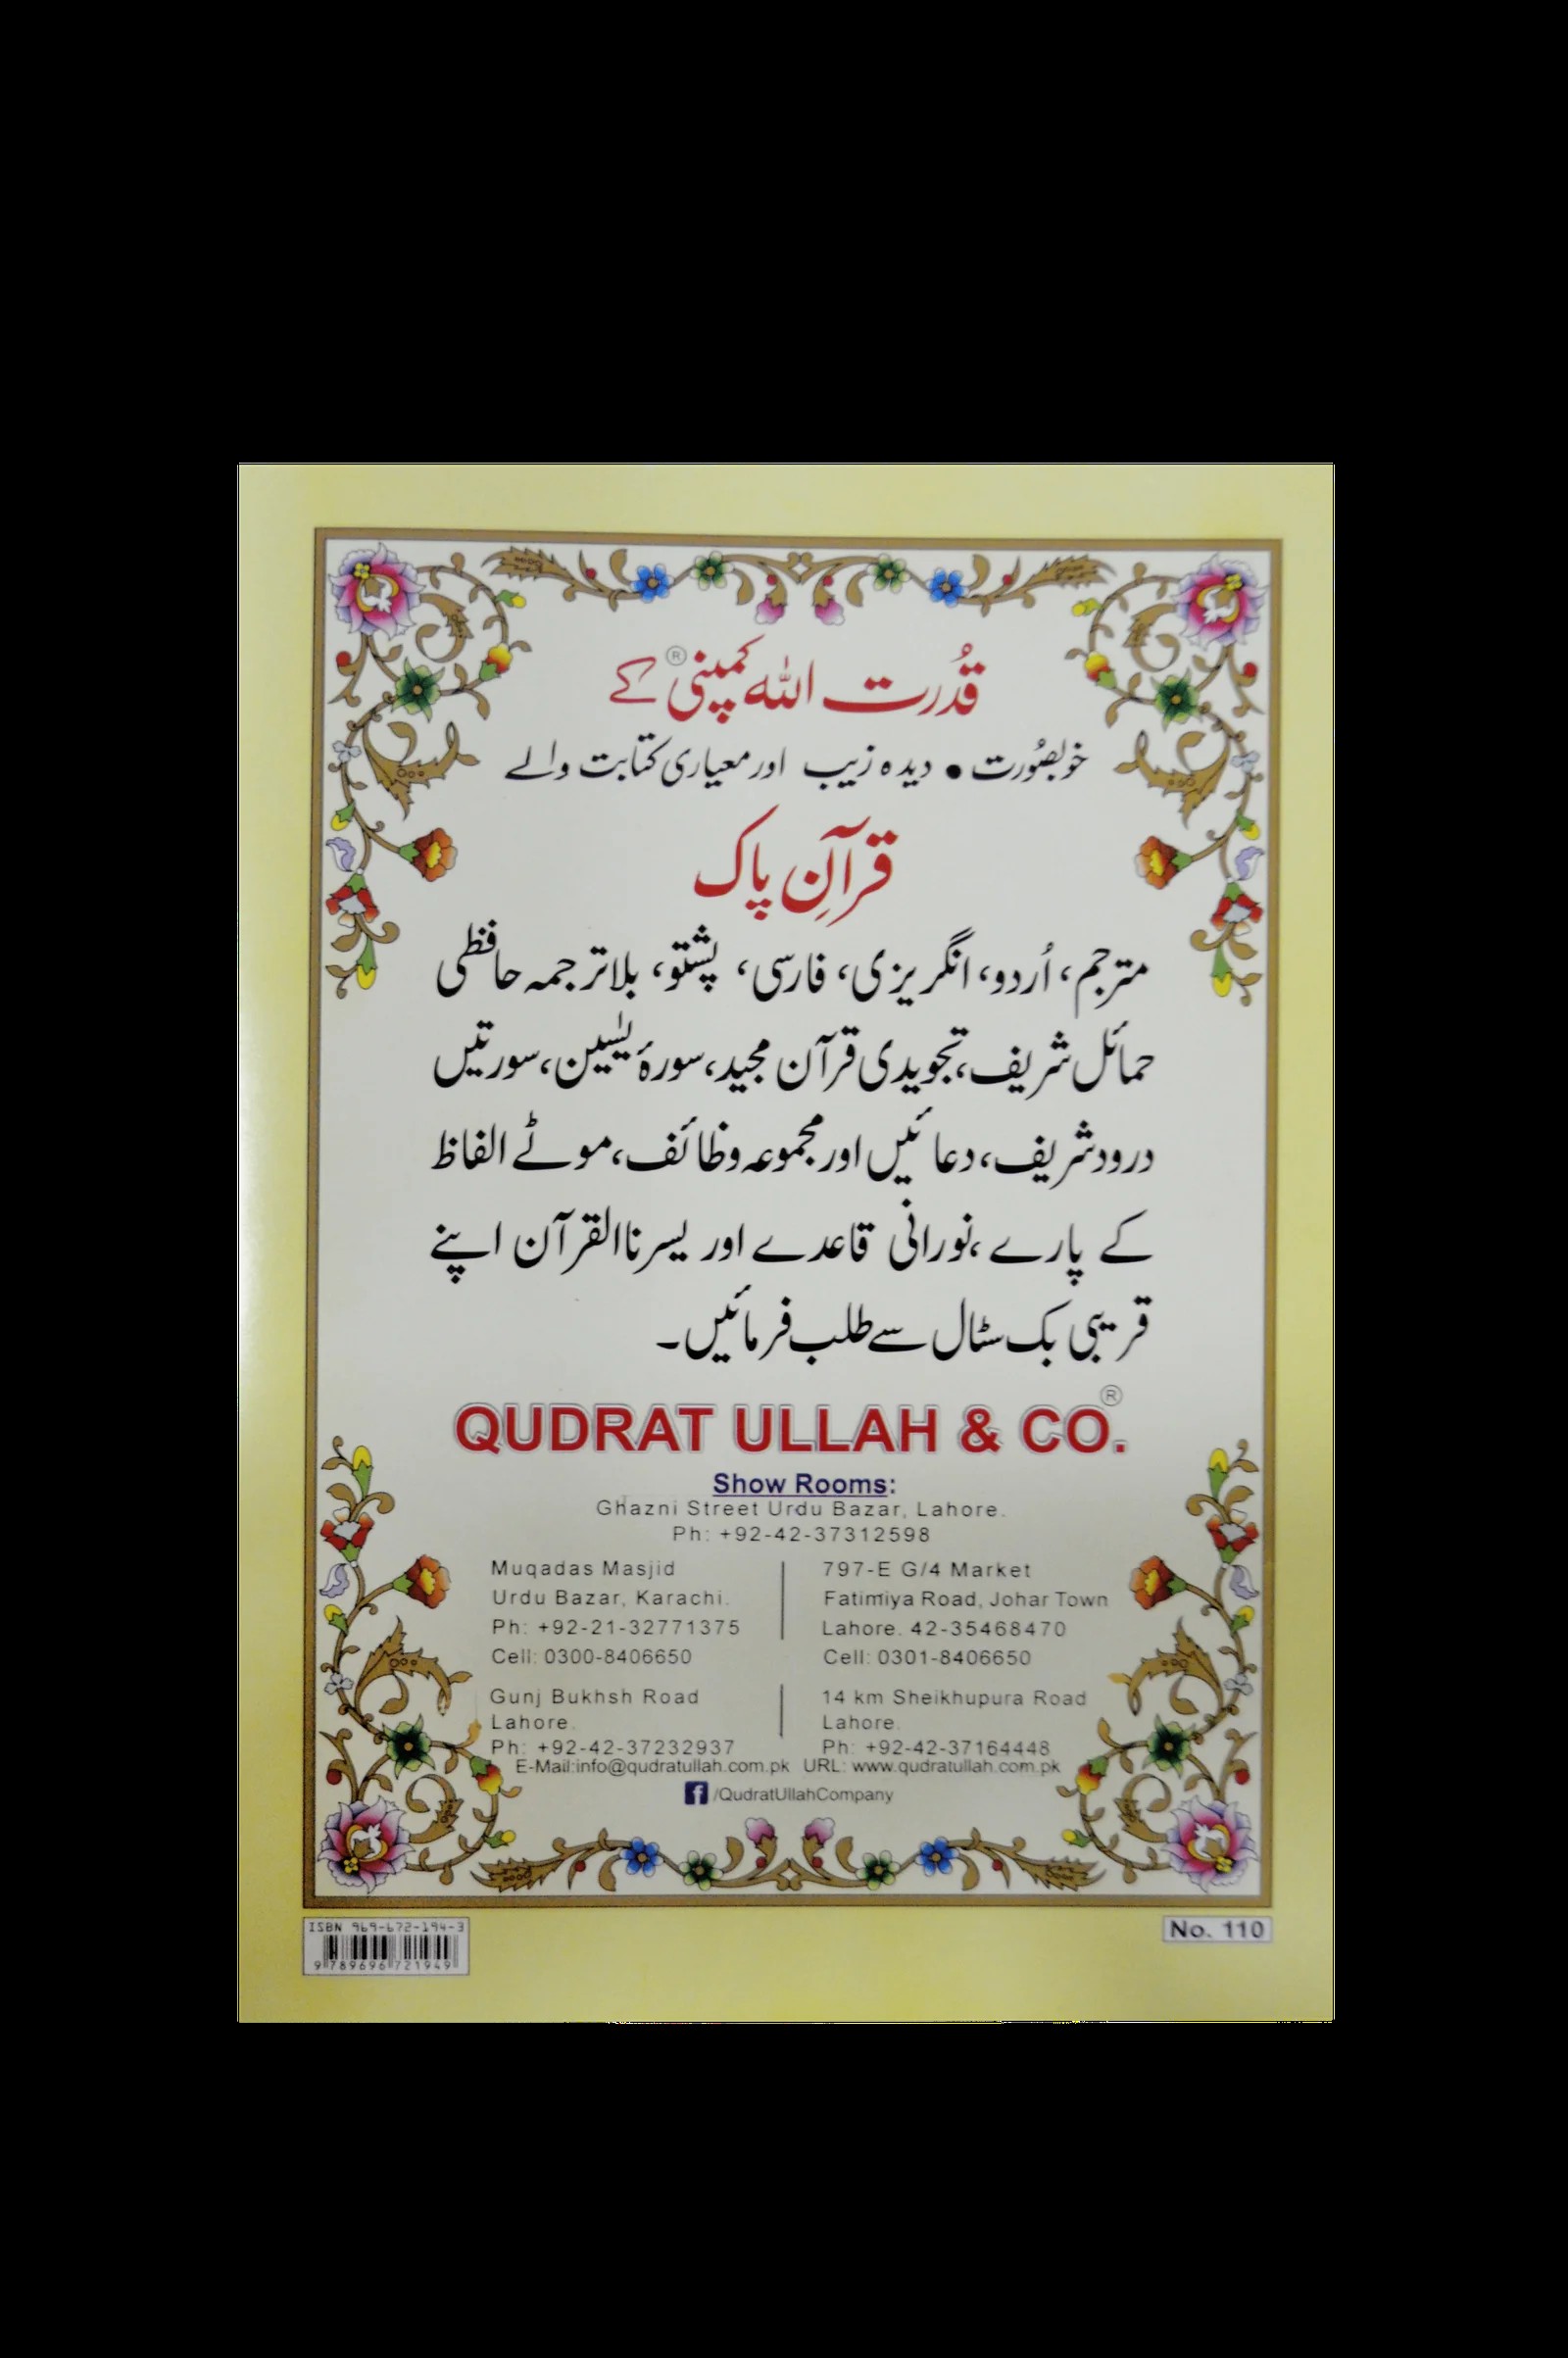 قُدرت اللہ کمپنی ® کے
خوبصُورت • دیدہ زیب اور معیاری کتابت والے
قرآنِ پاک
مترجم، اُردو، انگریزی، فارسی، پشتو، بلا ترجمہ حافظی
حمائل شریف، تجویدی قرآن مجید، سورۂ یٰسین، سورتیں
درود شریف، دعائیں اور مجموعہ وظائف، موٹے الفاظ
کے پارے، نورانی قاعدے اور یسرنا القرآن اپنے
قریبی بک سٹال سے طلب فرمائیں۔
QUDRAT ULLAH & CO.®
Show Rooms:
Ghazni Street Urdu Bazar, Lahore.
Ph: +92-42-37312598
Muqadas Masjid
Urdu Bazar, Karachi.
Ph: +92-21-32771375
Cell: 0300-8406650
797-E G/4 Market
Fatimiya Road, Johar Town
Lahore. 42-35468470
Cell: 0301-8406650
Gunj Bukhsh Road
Lahore.
Ph: +92-42-37232937
14 km Sheikhupura Road
Lahore.
Ph: +92-42-37164448
E-Mail:info@qudratullah.com.pk URL: www.qudratullah.com.pk
f /QudratUllahCompany
ISBN 969-672-194-3
9 789696 721949
No. 110